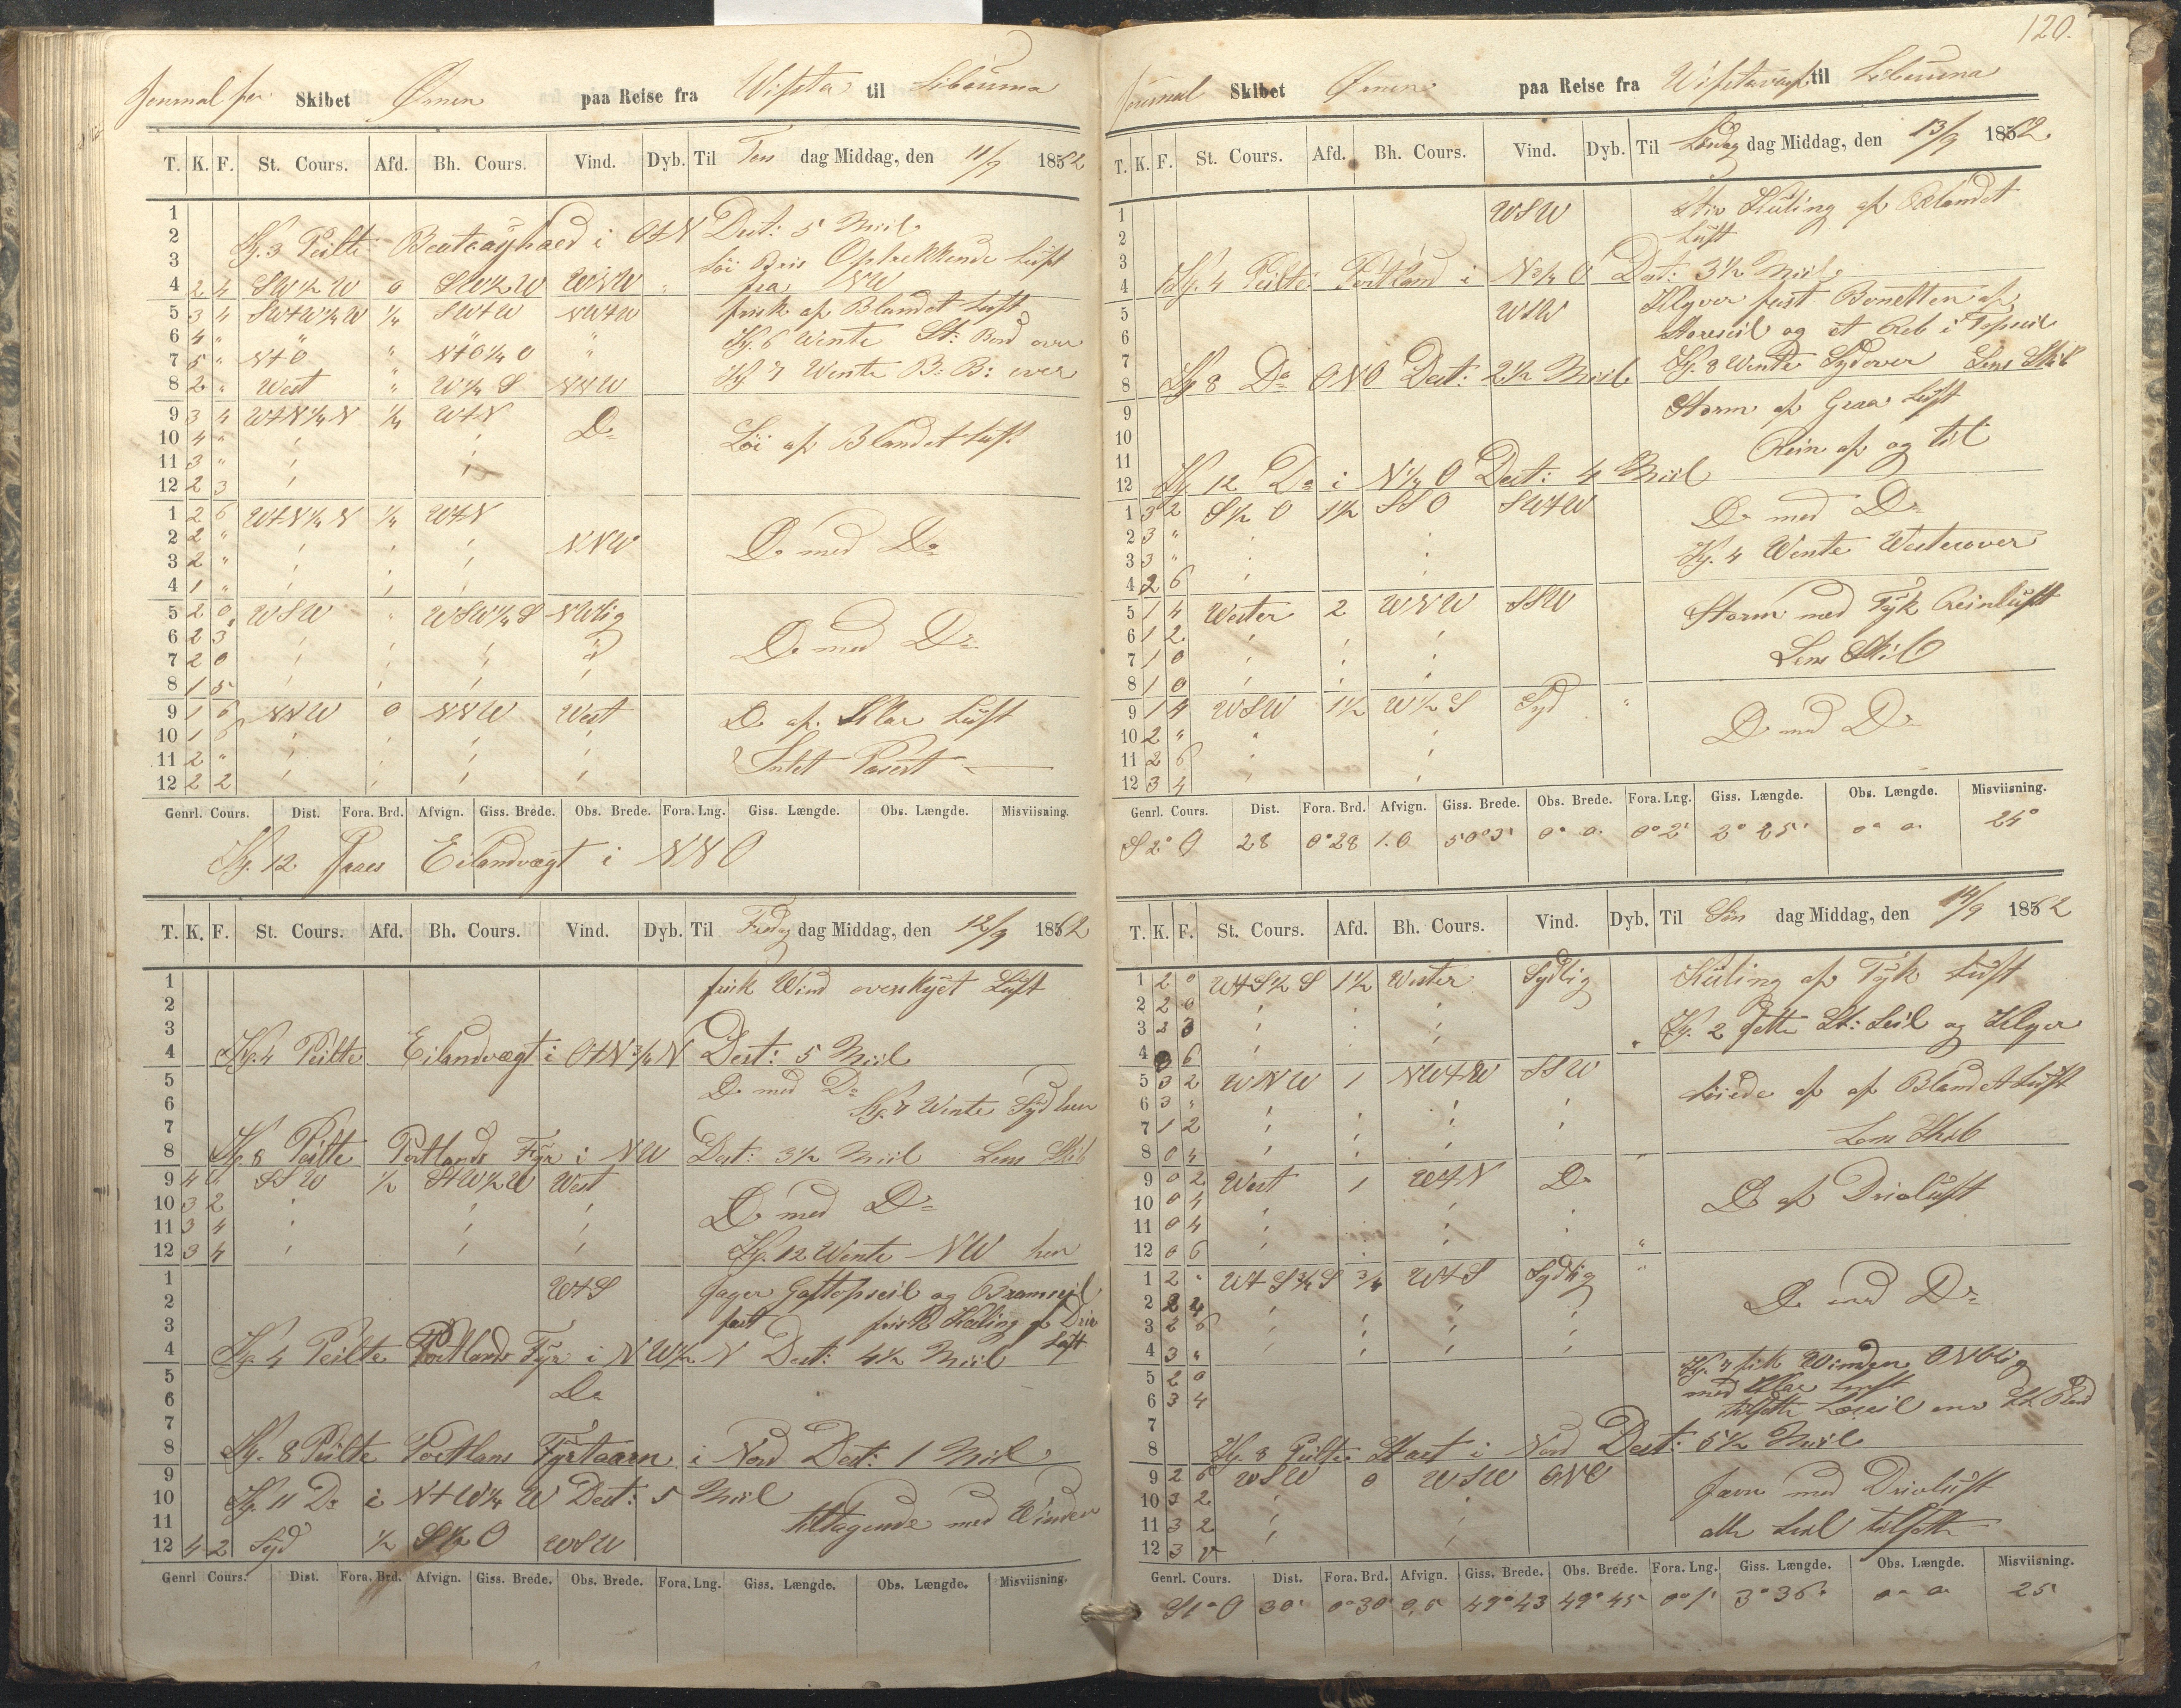 Journal for Skibet Ørnen paa Reise fra Wifsta til Libourna
T. K. F. St. Cours. Afd. Bh. Cours. Vind. Dyb. Til Tors dag Middag, den 11/9 1862
1
2 Kl. 3 Peilte Beatcayhaed i OtN Dest: 5 Miil
3 Löi Bris Optrekkende Luft
4 2 4 SW½W 0 SW½W WNW fra NW
5 3 4 SWtW¼W ¼ SWtW NWtW frisk af Blandet Luft
6 4 " " " Kl. 6 Wente St: Bord over
7 5 " NtO " NtO¼O " Kl 7 Wente B: B: over
8 2 " West " W¼S NNW
9 3 4 WtN¼N ¼ WtN Do
10 4 " Löi af Blandet Luft
11 3 "
12 2 3
1 2 6 WtN¼N ¼ WtN
2 2 " NNW Do med Do
3 2 "
4 1 "
5 2 0 WSW " WSW¼S NWlig
6 2 3 Do med Do
7 2 0
8 1 5
9 1 6 NNW 0 NNW West Do af Klar Luft
10 1 6
11 2 " Intet Pasert
12 2 2
Genrl. Cours. Dist. Fora. Brd. Afvign. Giss. Brede. Obs. Brede. Fora. Lng. Giss. Længde. Obs. Længde. Misviisning.
Kl. 12 Saaes Eilandvægt i NNO
T. K. F. St. Cours. Afd. Bh. Cours. Vind. Dyb. Til Fredag dag Middag, den 12/9 1862
1 frisk Wind overskyet Luft
2
3
4 Kl. 4 Peilte Eilandvægt i OtN¾N Dest: 5 Miil
5 Do med Do
6 Kl. 7 Wente Syd hen
7
8 Kl 8 Peilte Portlands Fyr i NW Dest: 3½ Miil Lens Skib
9 4 6 SSW ½ StW½W West
10 3 2 Do med Do
11 3 4
12 3 4 Kl. 12 Wente NW hen
1 WtS Jager Gaftopseil og Bramseil
2 fast frisk Kuling af Driv
3 Luft
4 Kl. 4 Peilte Portlands Fyr i NW½N Dest: 4½ Miil
5 Do
6
7
8 Kl. 8 Peilte Portlans Fyrtaarn i Nord Dest: 1 Miil
9
10 Kl 11 Do i NtW¼W Dest: 5 Miil
11 tiltagende med Winden
12 4 2 Syd ½ S½O WSW
Genrl Cours. Dist. Fora. Brd. Afvign. Giss. Brede. Obs. Brede. Fora. Lng. Giss. Længde. Obs. Længde. Misviisning.
120.
Journal Skibet Ørnen paa Reise fra Wifstavarf til Libourna
T. K. F. St. Cours. Afd. Bh. Cours. Vind. Dyb. Til Lördag dag Middag, den 13/9 1862.
1 WSW stiv Kuling af Blandet
2 Luft
3
4 Kl. 4 Peilte Portland i N¾O Dest: 3½ Miil
5 WSW Klyver fast Bonetten af
6 Storeseil og et Reb i Topseil
7 Kl. 8 Wente Sydover Lens Skib
8 Kl 8 Do ONO Dest: 2½ Miil
9 Storm af Graa Luft
10
11 Rein af og til
12 Kl 12 Do i N¼O Dest: 4 Miil
1 3 2 S½O 1½ SSO SWtW Do med Do
2 3 "
3 3 " Kl. 4 Wente Westerover
4 2 6
5 1 4 Wester 2 WNW SSW Storm med Tyk Reinluft
6 1 2
7 1 0 Lens Skib
8 1 0
9 1 4 WSW 1½ W½S Syd "
10 2 " Do med Do
11 2 6
12 3 4
Genrl. Cours. Dist. Fora. Brd. Afvign. Giss. Brede. Obs. Brede. Fora. Lng. Giss. Længde. Obs. Længde. Misviisning.
S2°O 28 0°28 1.0 50°3' 0° 0. 0°2' 2°25' 0° 0. 25°
T. K. F. St. Cours. Afd. Bh. Cours. Vind. Dyb. Til Sön dag Middag, den 14/9 1862
1 2 0 WtS½S 1½ Wester Sydlig Kuling af Tyk Luft
2 2 0
3 2 3 Kl. 2 sette St: Seil og Klyver
4 3 6
5 3 2 WNW 1 NWtW SSW Löiede af af Blandet Luft
6 3 "
7 1 2 Lens Skib
8 0 4
9 0 2 West 1 WtN Do
10 0 4 Do af Drivluft
11 0 4
12 0 6
1 2 " WtS¾S ¾ WtS Sydlig "
2 2 4 Do med Do
3 2 6
4 3 "
5 2 0 Kl. 7 fik Winden ONOlig
6 3 4 med Klar Luft
7 tilsette Læseil
8 Kl. 8 Peilte Staet i Nord Dest: 5½ Miil
9 2 6 WSW 0 WSW ONO Jævn med Drivluft
10 3 2
11 3 2 alle Seil tilsette
12 3
Genrl. Cours. Dist. Fora. Brd. Afvign. Giss. Brede. Obs. Brede. Fora. Lng. Giss. Længde. Obs. Længde. Misviisning.
S1°O 30' 0°30' 0,5 49°43 49°45 0°1' 3°36. 0° 0. 25